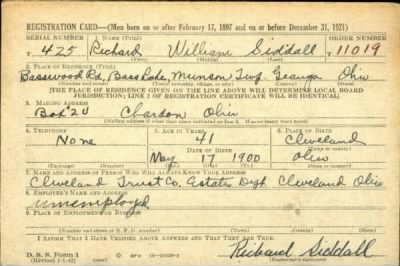 REGISTRATION CARD—(Men born on or after February 17, 1897 and on or before December 31, 1921)
SERIAL NUMBER 1. NAME (Print) ORDER NUMBER
425 Richard William Siddall 11019
(First) (Middle) (Last)
2. PLACE OF RESIDENCE (Print)
Basswood Rd, Bass Lake, Munson Twp. Geauga Ohio
(Number and street) (Town, township, village, or city) (County) (State)
[THE PLACE OF RESIDENCE GIVEN ON THE LINE ABOVE WILL DETERMINE LOCAL BOARD
JURISDICTION; LINE 2 OF REGISTRATION CERTIFICATE WILL BE IDENTICAL]
3. MAILING ADDRESS
Box Chardon Ohio
[Mailing address if other than place indicated on line 2. If same insert word same]
4. TELEPHONE 5. AGE IN YEARS 6. PLACE OF BIRTH
None 41 Cleveland
DATE OF BIRTH
May 17 1900 Ohio
(Mo.) (Day) (Yr.) (State or country)
7. NAME AND ADDRESS OF PERSON WHO WILL ALWAYS KNOW YOUR ADDRESS
Cleveland Trust Co. Estates Dept. Cleveland Ohio
8. EMPLOYER'S NAME AND ADDRESS
unemployed
9. PLACE OF EMPLOYMENT OR BUSINESS
(Number and street or R. F. D. number) (Town) (County) (State)
I AFFIRM THAT I HAVE VERIFIED ABOVE ANSWERS AND THAT THEY ARE TRUE.
D. S. S. Form 1
(Revised 1-1-42) Richard Siddall
(Registrant's signature)